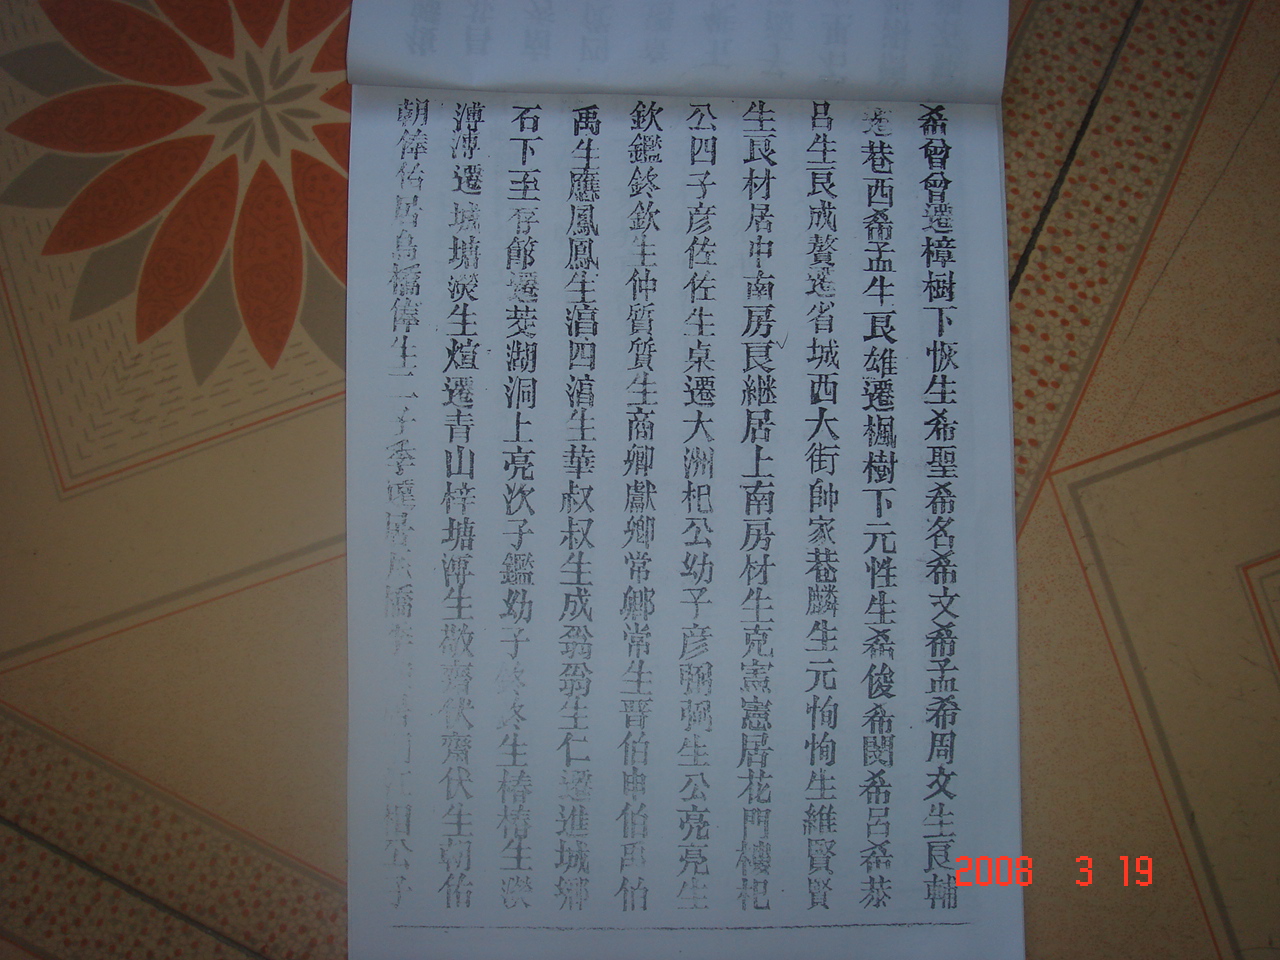 希曾曾遷樟樹下恢生希聖希名希文希孟希周文生艮輔
遷巷西希孟生艮雄遷楓樹下元性生希俊希閔希呂希恭
呂生艮成贅遷省城西大街帥家巷麟生元恂恂生維賢賢
生艮材居中南房艮継居上南房材生克憲憲居花門樓杞
公四子彦佐佐生桌遷大洲杞公幼子彦弼弼生公亮亮生
欽鑑終欽生仲質質生商卿獻卿常卿常生晋伯申伯禹伯
禹生應鳳鳳生滈四滈生華叔叔生成翁翁生仁遷進城鄉
石下至存節遷茭湖洞上亮次子鑑幼子終終生椿椿生淡
溥漙遷城塘淡生煊遷青山梓塘漙生敬齋伏齋伏生朝佑
朝俸佑居烏橋俸生二子季 居 橋 公子
2008 3 19